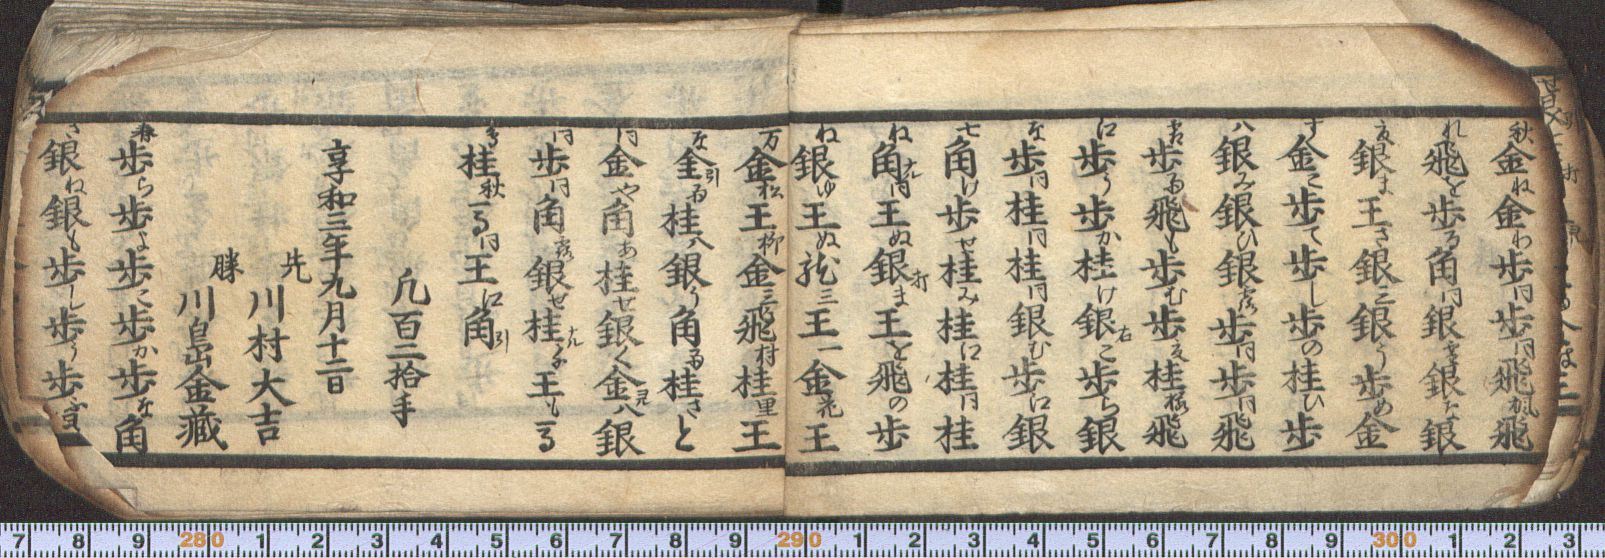 秋金ね金わ歩同歩同飛飛
れ飛と歩る角同銀銀た銀
銀ま王さ銀こ銀う歩め金
す金こ歩て歩し歩の桂ひ歩
八銀み銀ひ銀歩同歩同飛飛
歩る飛も歩む歩桂飛
江歩う歩か桂け銀右こ歩ら銀
な歩同桂同桂同銀む歩江銀
七角け歩せ桂み桂江桂同桂
ね角成同王ぬ銀打ま王と飛の歩
ね銀ゆ王ぬ龍三王一金花王
万金松王柳金飛村桂里王
な金引る桂八銀う角る桂さと
同金や角あ桂せ銀く金八銀
同歩同角銀せ桂成王もる
桂秋る同王江角引
凡百二拾手
享和三年九月十二日
先 川村大吉
勝 川島金蔵
春歩ら歩よ歩こ歩か歩な角
さ銀ね銀も歩し歩う歩
7 8 9 280 1 2 3 4 5 6 7 8 9 290 1 2 3 4 5 6 7 8 9 300 1 2 3